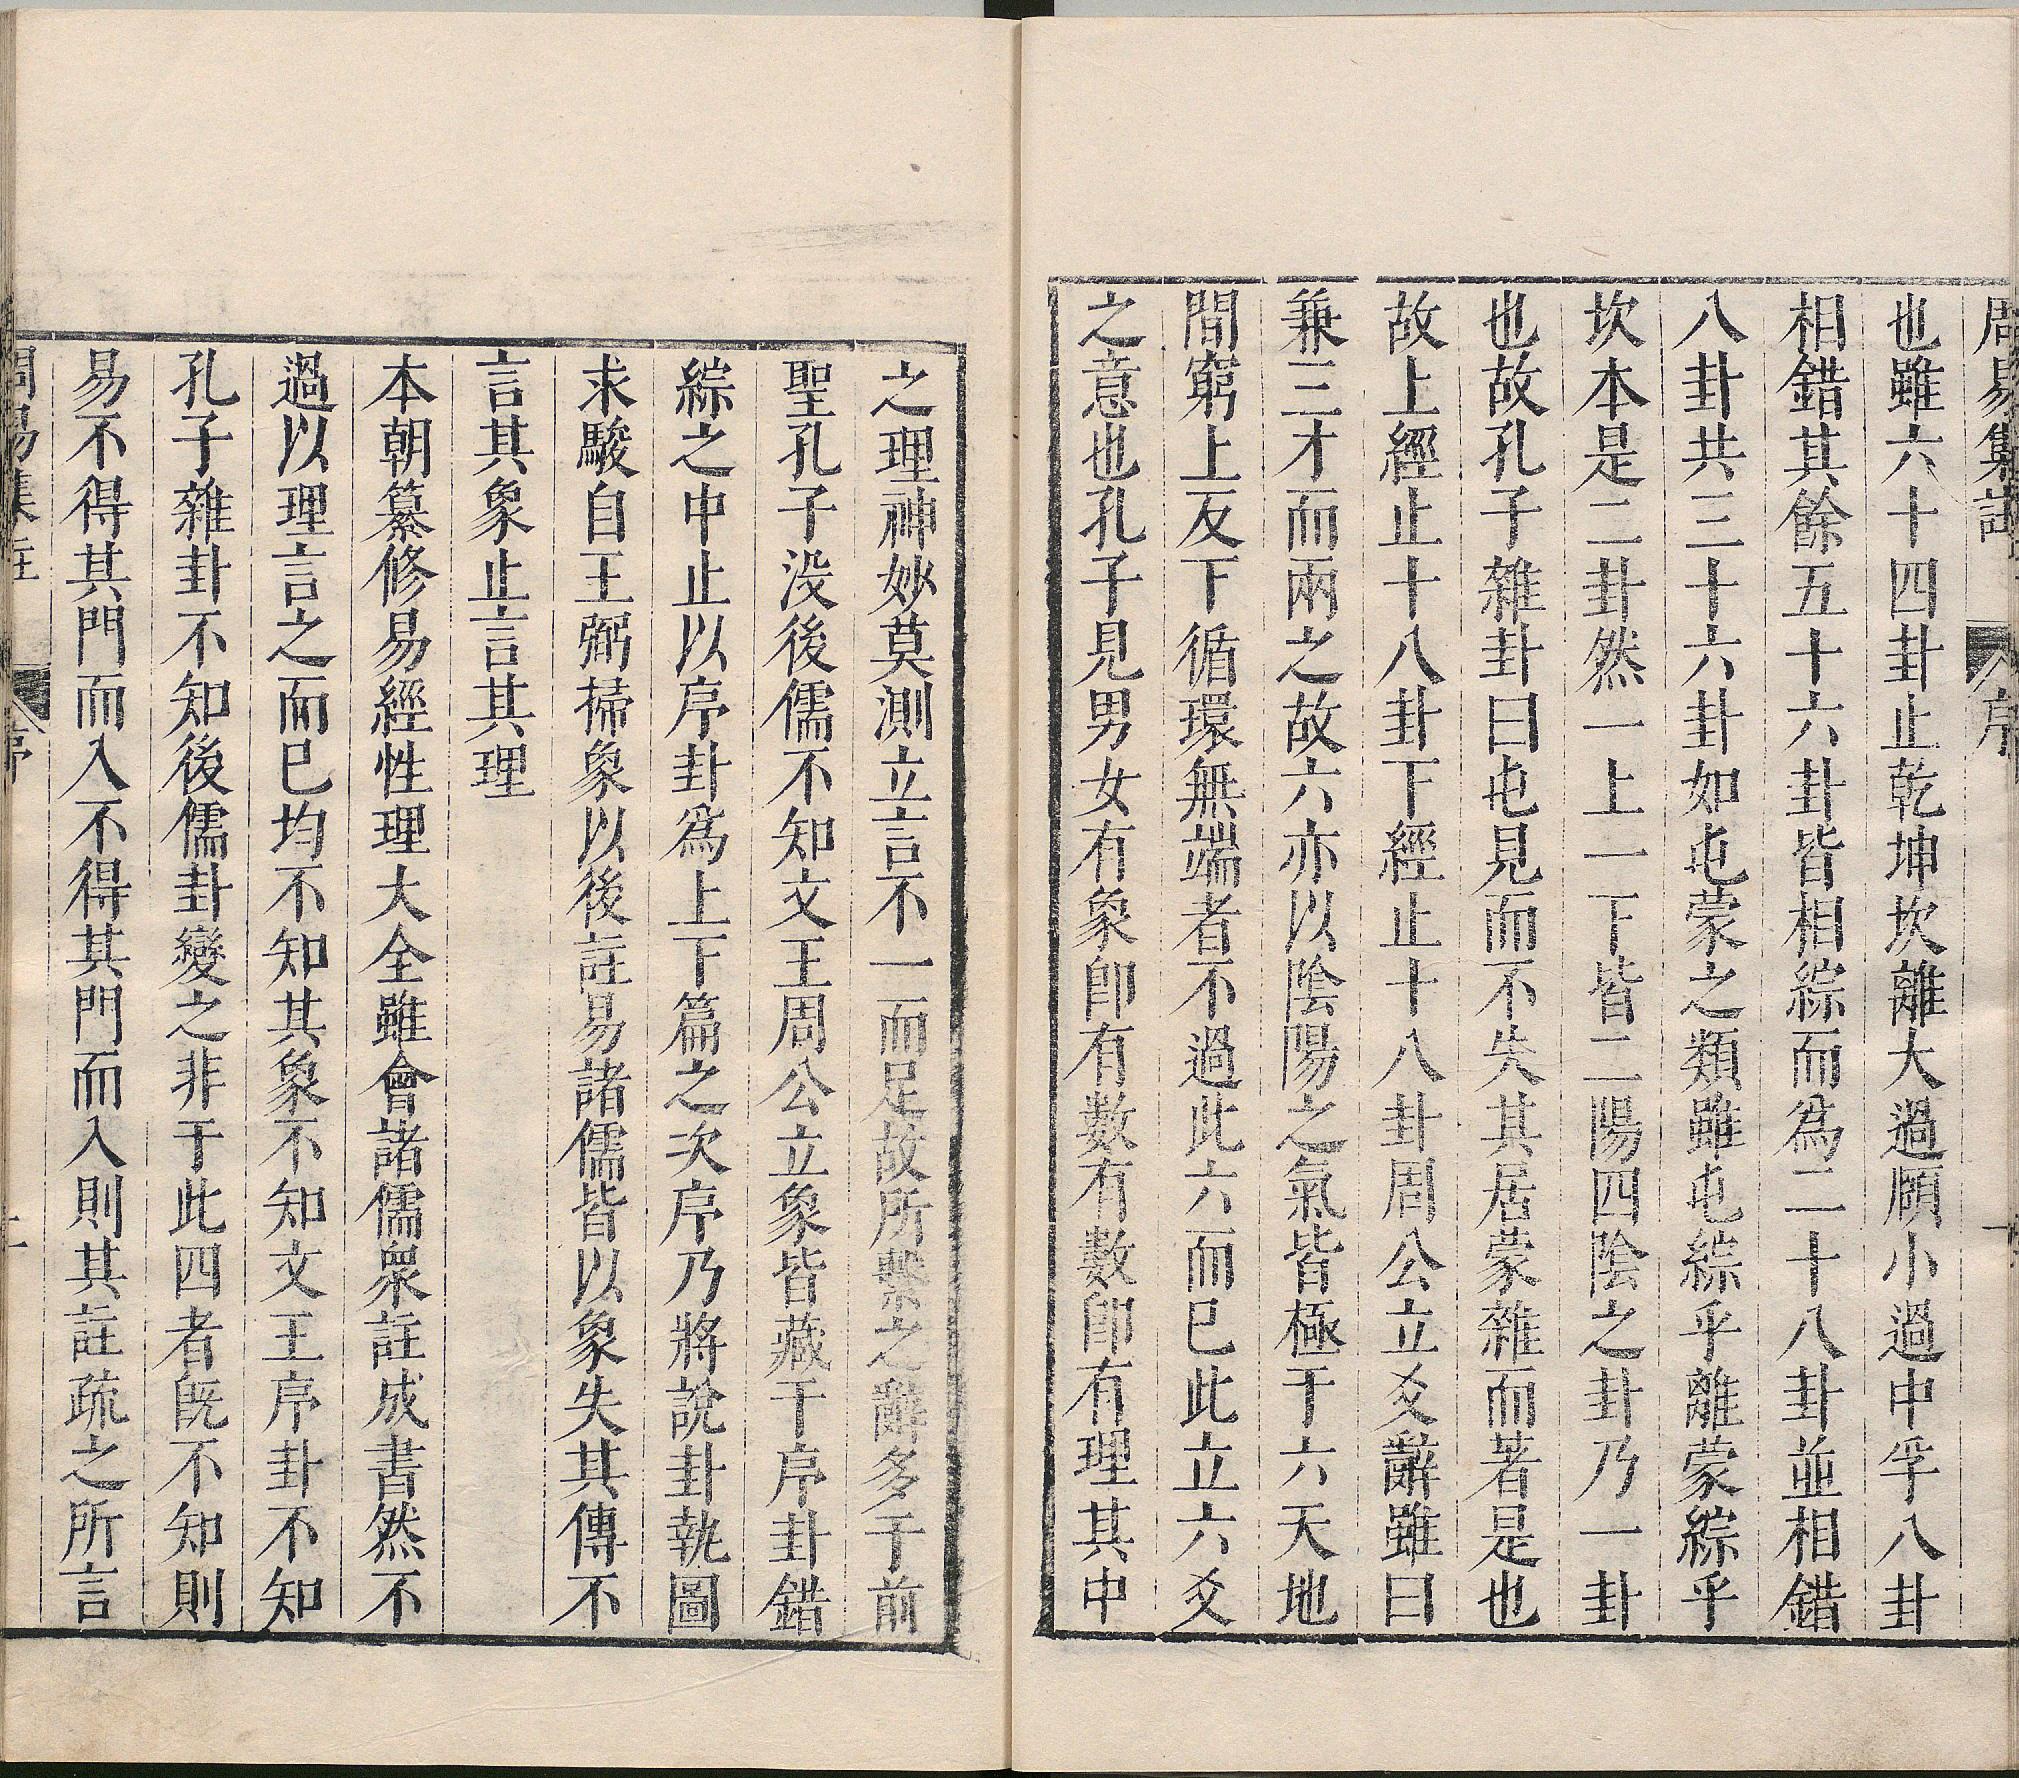 周易集註 序
也雖六十四卦止乾坤坎離大過頤小過中孚八卦
相錯其餘五十六卦皆相綜而爲二十八卦並相錯
八卦共三十六卦如屯蒙之類雖屯綜乎離蒙綜乎
坎本是二卦然一上一下皆二陽四陰之卦乃一卦
也故孔子雜卦曰屯見而不失其居蒙雜而著是也
故上經止十八卦下經止十八卦周公立爻辭雖曰
兼三才而兩之故六亦以陰陽之氣皆極于六天地
間窮上反下循環無端者不過此六而已此立六爻
之意也孔子見男女有象卽有數有數卽有理其中
之理神妙莫測立言不一而足故所繫之辭多于前
聖孔子没後儒不知文王周公立象皆藏于序卦錯
綜之中止以序卦爲上下篇之次序乃將說卦執圖
求駿自王弼掃象以後註易諸儒皆以象失其傳不
言其象止言其理
本朝纂修易經性理大全雖會諸儒衆註成書然不
過以理言之而已均不知其象不知文王序卦不知
孔子雜卦不知後儒卦變之非于此四者旣不知則
易不得其門而入不得其門而入則其註疏之所言
周易集註 序